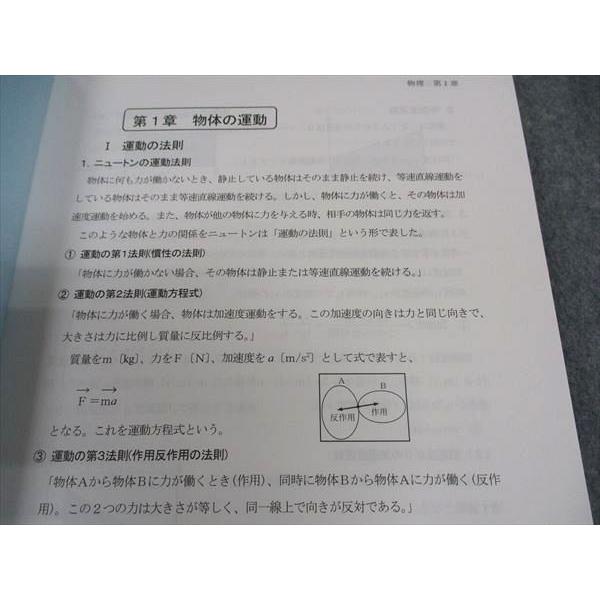 物理 第1章
第1章 物体の運動
Ⅰ 運動の法則
1. ニュートンの運動法則
物体に何も力が働かないとき、静止している物体はそのまま静止を続け、等速直線運動を
している物体はそのまま等速直線運動を続ける。しかし、物体に力が働くと、その物体は加
速度運動を始める。また、物体が他の物体に力を与える時、相手の物体は同じ力を返す。
このような物体と力の関係をニュートンは「運動の法則」という形で表した。
① 運動の第1法則(慣性の法則)
「物体に力が働かない場合、その物体は静止または等速直線運動を続ける。」
② 運動の第2法則(運動方程式)
「物体に力が働く場合、物体は加速度運動をする。この加速度の向きは力と同じ向きで、
大きさは力に比例し質量に反比例する。」
質量をm〔kg〕、力をF〔N〕、加速度をa〔m/s²〕として式で表すと、
F→=ma→
A B
反作用 作用
となる。これを運動方程式という。
③ 運動の第3法則(作用反作用の法則)
「物体Aから物体Bに力が働くとき(作用)、同時に物体Bから物体Aに力が働く(反作
用)。この2つの力は大きさが等しく、同一線上で向きが反対である。」